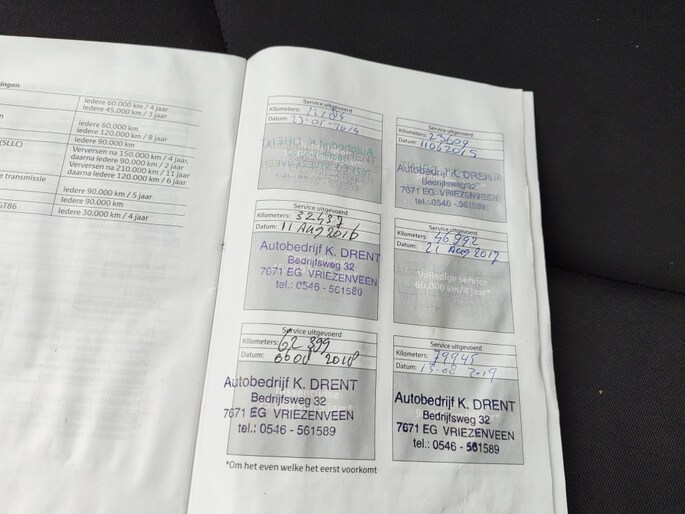 Iedere 60.000 km / 4 jaar
Iedere 45.000 km / 3 jaar
Iedere 60.000 km
Iedere 120.000 km / 8 jaar
(SLLC)
Iedere 90.000 km
Verversen na 150.000 km / 4 jaar,
daarna Iedere 90.000 km / 2 jaar
Verversen na 210.000 km / 11 jaar
daarna Iedere 120.000 km / 6 jaar
e transmissie
Iedere 90.000 km / 5 jaar
Iedere 90.000 km
GT86
Iedere 30.000 km / 4 jaar
Service uitgevoerd
Kilometers:
Datum:
Service uitgevoerd
Kilometers:
Datum:
Autobedrijf K. DRENT
Bedrijfsweg 32
7671 EG VRIEZENVEEN
tel.: 0546 - 561589
Service uitgevoerd
Kilometers: 32437
Datum: 11 Aug 2016
Autobedrijf K. DRENT
Bedrijfsweg 32
7671 EG VRIEZENVEEN
tel.: 0546 - 561589
Service uitgevoerd
Kilometers: 46992
Datum: 21 Aug 2017
Volledige service
60.000 km/4 jaar*
Service uitgevoerd
Kilometers: 62 399
Datum: 2018
Autobedrijf K. DRENT
Bedrijfsweg 32
7671 EG VRIEZENVEEN
tel.: 0546 - 561589
Service uitgevoerd
Kilometers: 79945
Datum: 13-08 2019
Autobedrijf K. DRENT
Bedrijfsweg 32
7671 EG VRIEZENVEEN
tel.: 0546 - 561589
*Om het even welke het eerst voorkomt